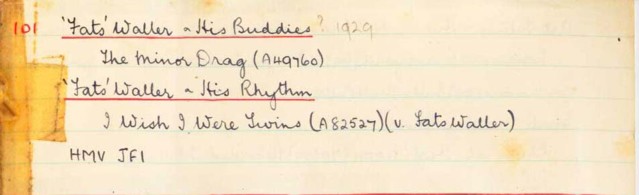 101 'Fats' Waller & His Buddies ? 1929
The Minor Drag (A49760)
'Fats' Waller & His Rhythm
I Wish I Were Twins (A82527) (v. Fats Waller)
HMV JF1